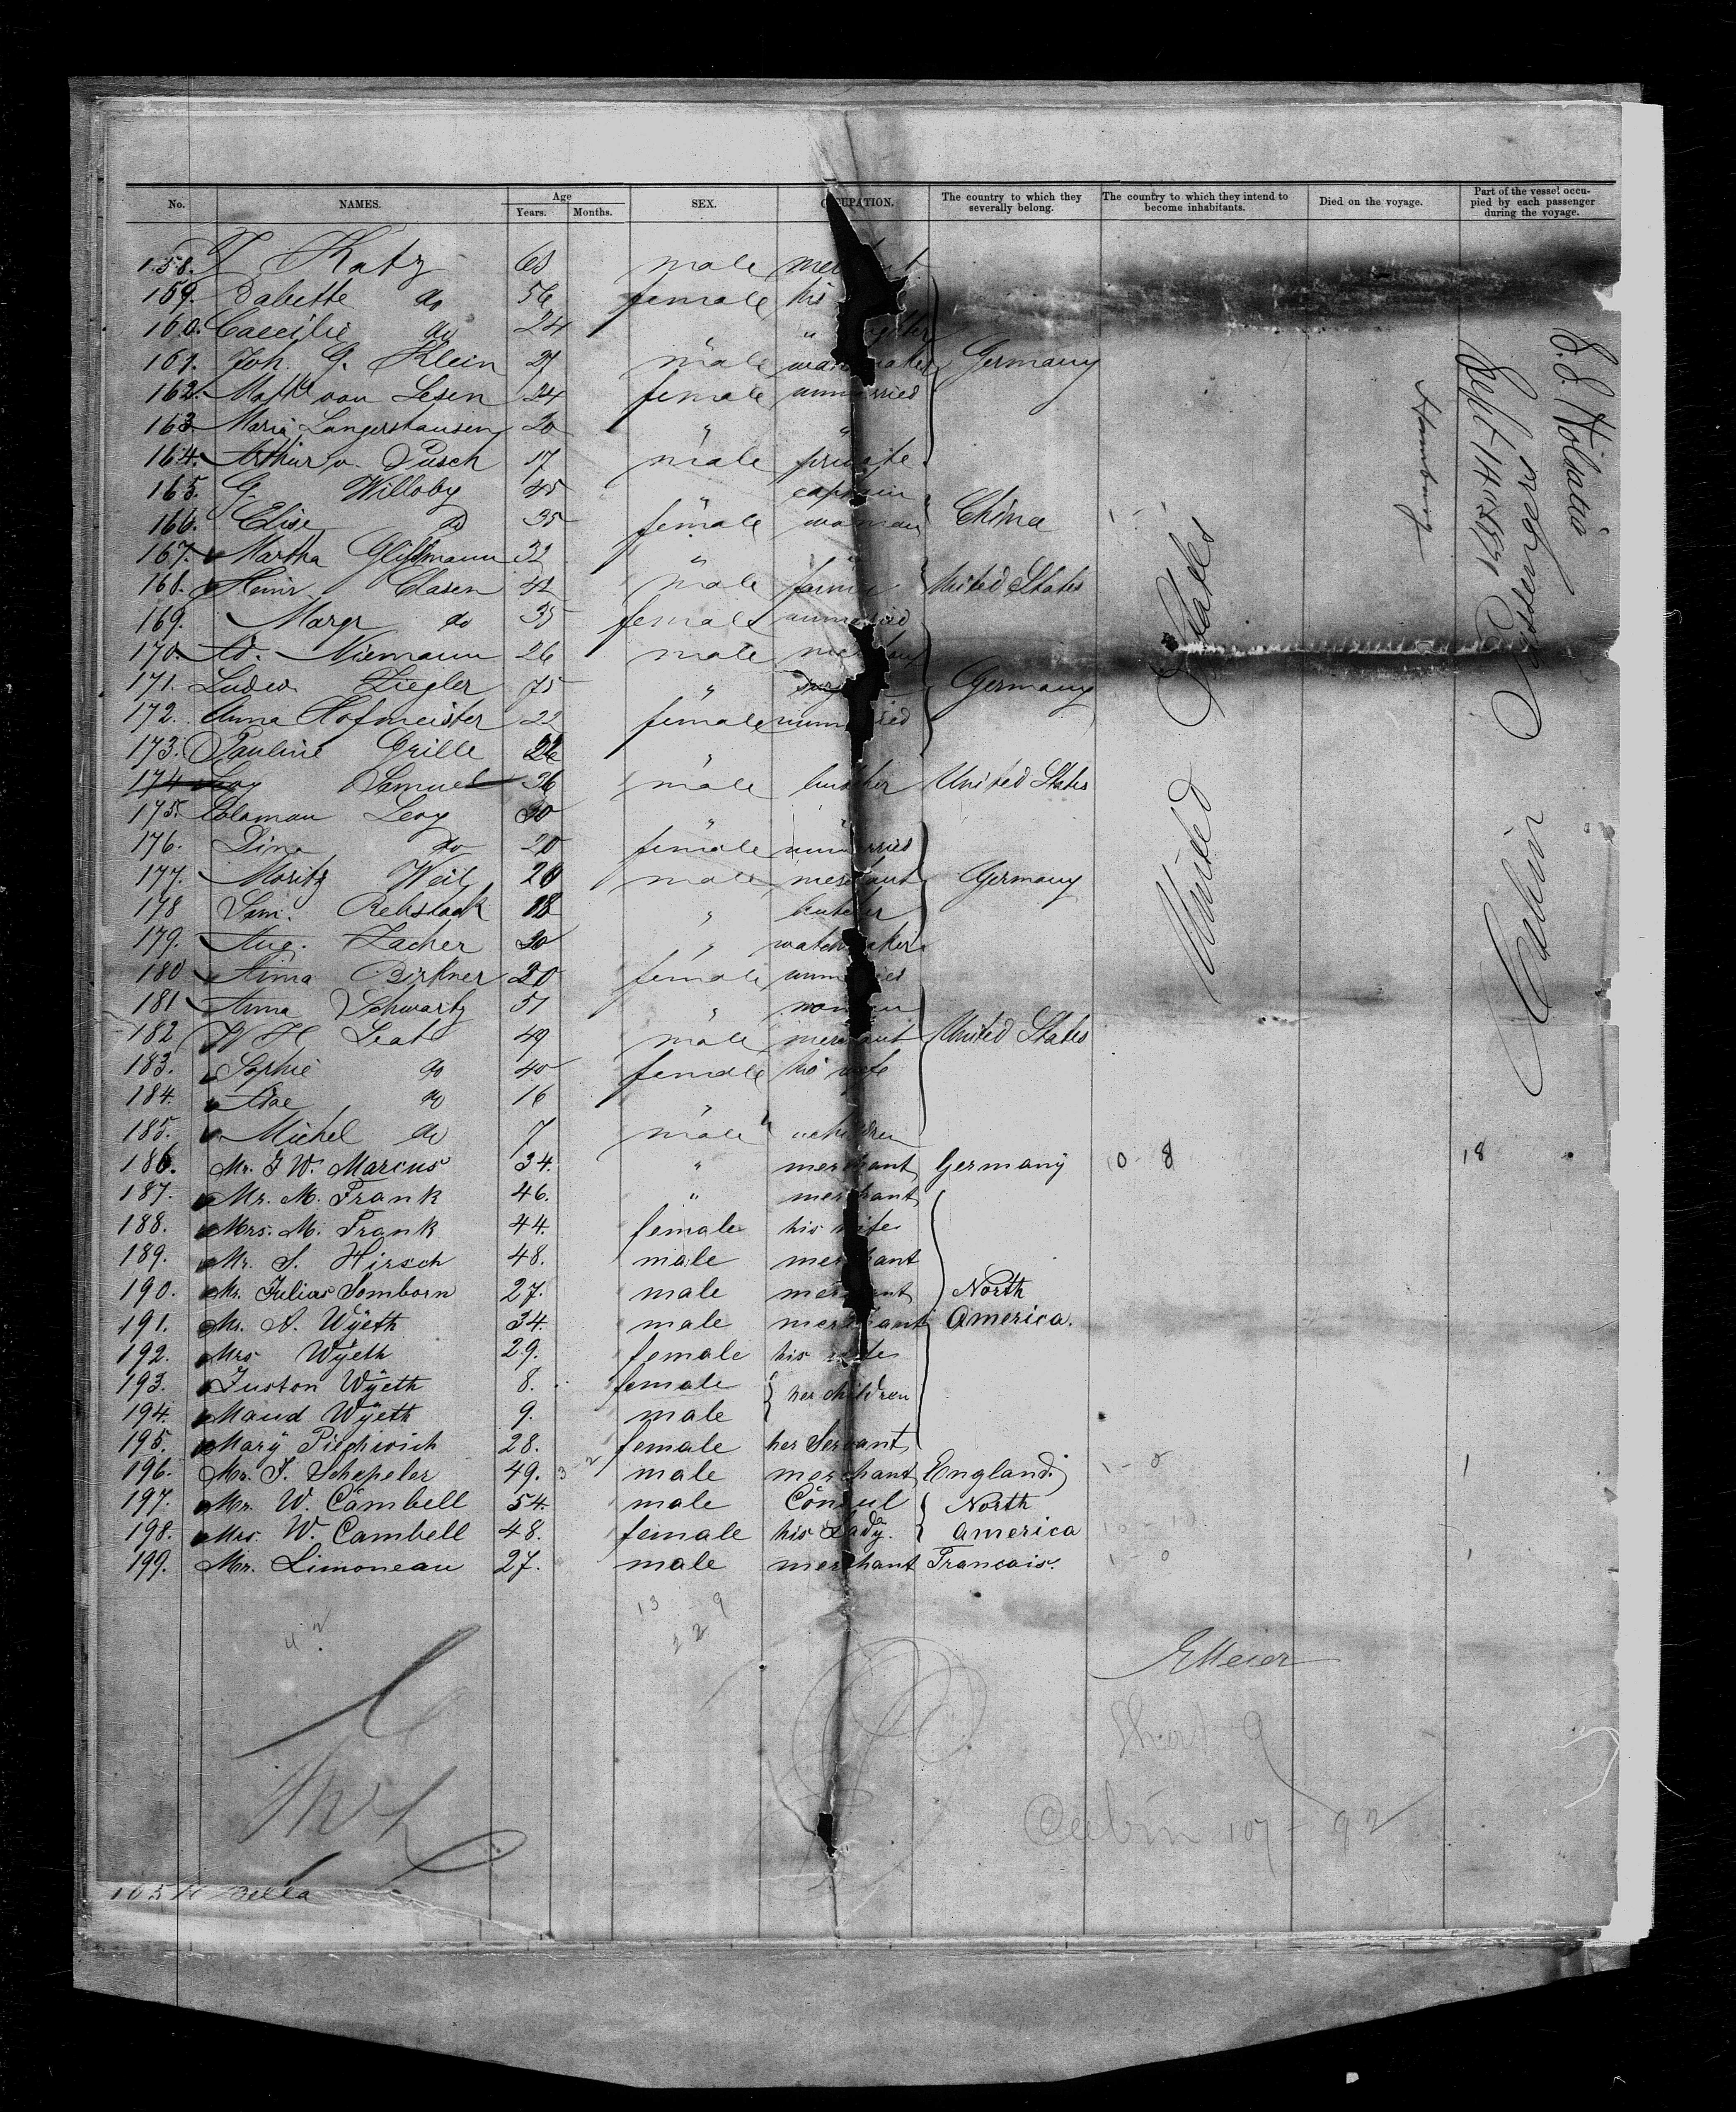 No. NAMES. Age Years. Months. SEX. OCCUPATION. The country to which they severally belong. The country to which they intend to become inhabitants. Died on the voyage. Part of the vessel occupied by each passenger during the voyage.
158. Katz 63 male
159. Babette do 56 female his
160. Caecilie do 24 "
161. Joh. G. Klein 21 male Germany
162. von Lesen 24 female unmarried
163. Maria Langershausen 20 " "
164. Arthur v. Pusch 17 male private
165. G. Willoby 45 " captain
166. Elise do 35 female woman China
167. Martha 32 " "
168. Heinr. Clasen 42 male farmer United States
169. Margr do 35 female unmarried
170. Ad. Niemann 26 male
171. Ludw. Ziegler 75 " Germany
172. Anna Hofmeister 22 female unmarried
173. Pauline Grille 26 "
174 Levy Samuel 36 male butcher United States
175. Coloman Levy 30 " "
176. Dina do 20 female unmarried
177. Moritz Weil 20 male merchant Germany
178 Sam. Rehstock 18 " butcher
179. Aug. Zacher 30 " watchmaker
180 Anna Birkner 20 female unmarried
181 Anna Schwartz 51 " woman
182 W H Leat 49 male merchant United States
183. Sophie do 40 female his wife
184. do 16 "
185. Michel do 7 male " children
186. Mr. J W. Marcus 34. " merchant Germany 10 8 18
187. Mr. M. Frank 46. " merchant
188. Mrs. M. Frank 44. female his wife
189. Mr. S. Hirsch 48. male merchant
190. Mr. Julius Somborn 27. male merchant North
191. Mr. A. Wyeth 34. male merchant America.
192. Mrs Wyeth 29. female his wife
193. Juston Wyeth 8. female her children
194. Maud Wyeth 9. male
195. Mary 28. female her Servant
196. Mr. J. Schepeler 49. male merchant England. 1
197. Mr. W. Cambell 54. male Consul North
198. Mrs. W. Cambell 48. female his Lady. America
199. Mr. Limoneau 27. male merchant Francais. 1
United States
Hamburg
S.S. Holsatia
Sept 14 1871
Cabin Passengers
13 - 9
22
EMeier
Short 9
Cabin 107 - 92
Bella